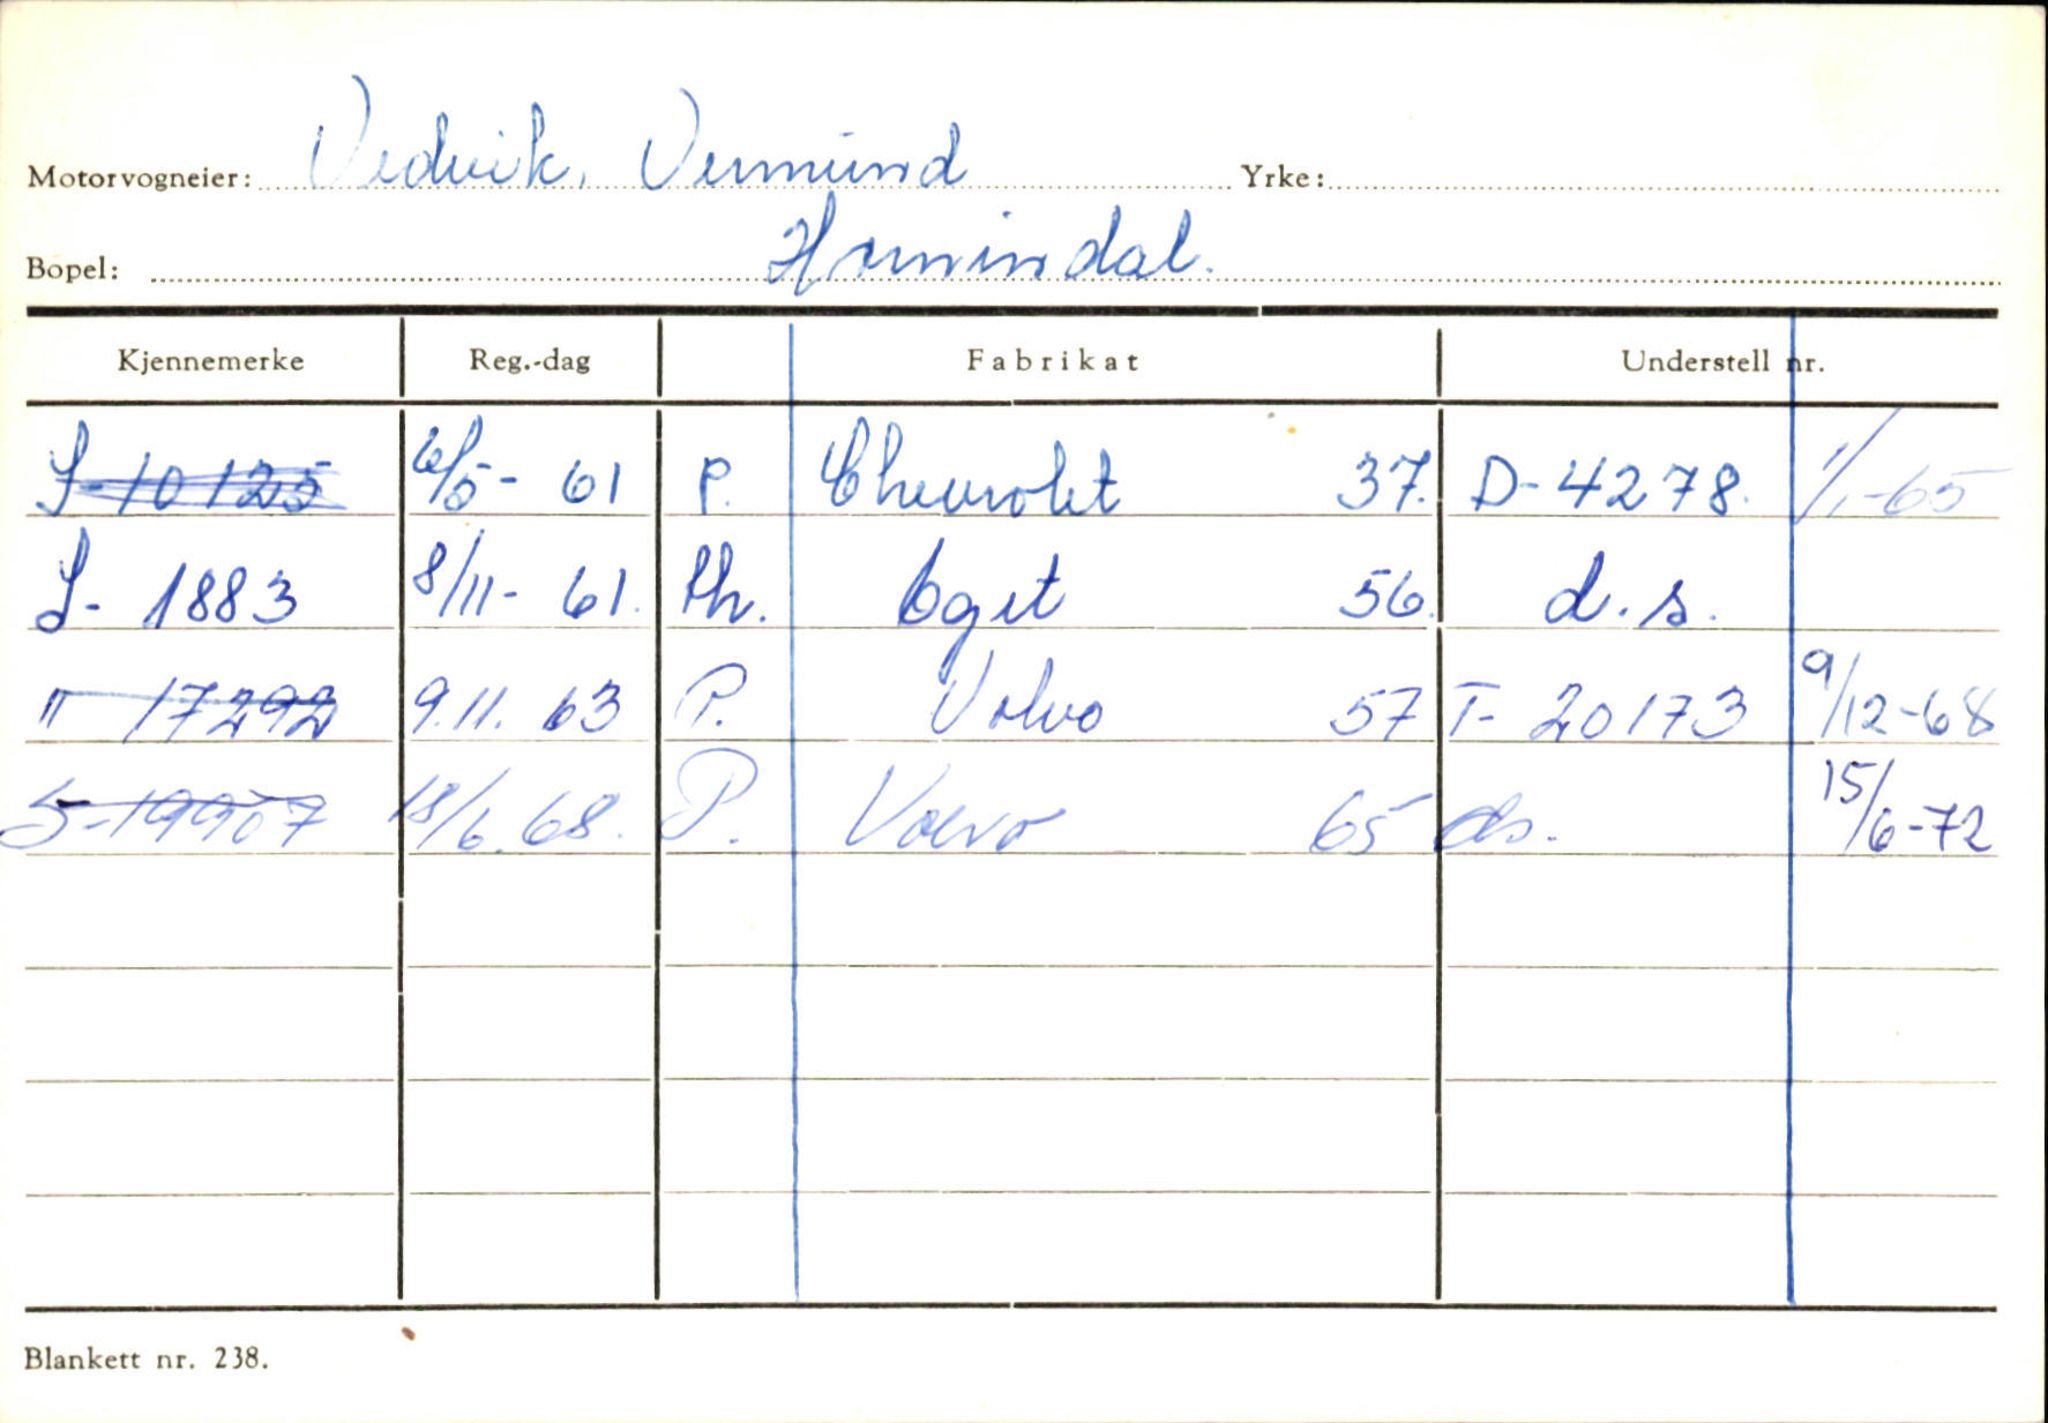 Motorvogneier: Vedvik, Vermund Yrke:
Bopel: Hornindal.
Kjennemerke Reg.-dag Fabrikat Understell nr.
S-10125 6/5-61 P. Chevrolet 37. D-4278. 1/1-65
S-1883 8/11-61. th. Eget 56. d.s.
" 17292 9.11.63 P. Volvo 57 T-20173 9/12-68
S-19907 18/6.68. P. Volvo 65 ds. 15/6-72
Blankett nr. 238.